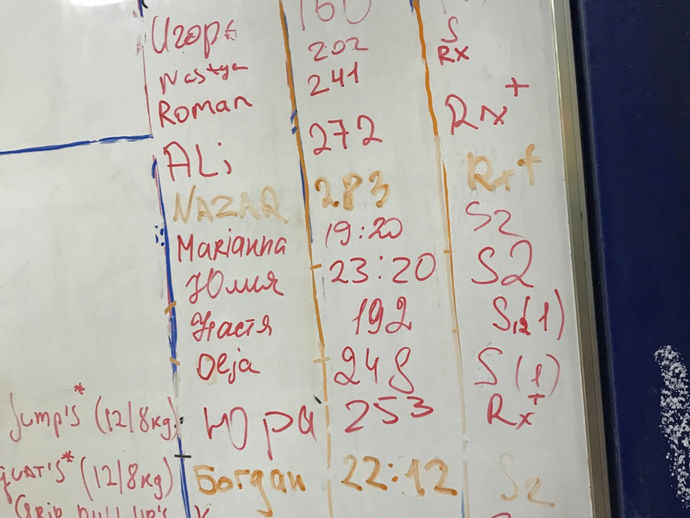 160
Игорь 202 S
Nastya 241 Rx
Roman
ALi 272 Rx+
NAZAR 283 Rx+
Marianna 19:20 S2
Юлия 23:20 S2
Настя 192 S(1)
Olja 248 S(1)
Jump's* (12/8kg) Юра 253 Rx+
quat's* (12/8kg) Богдан 22:12 S2